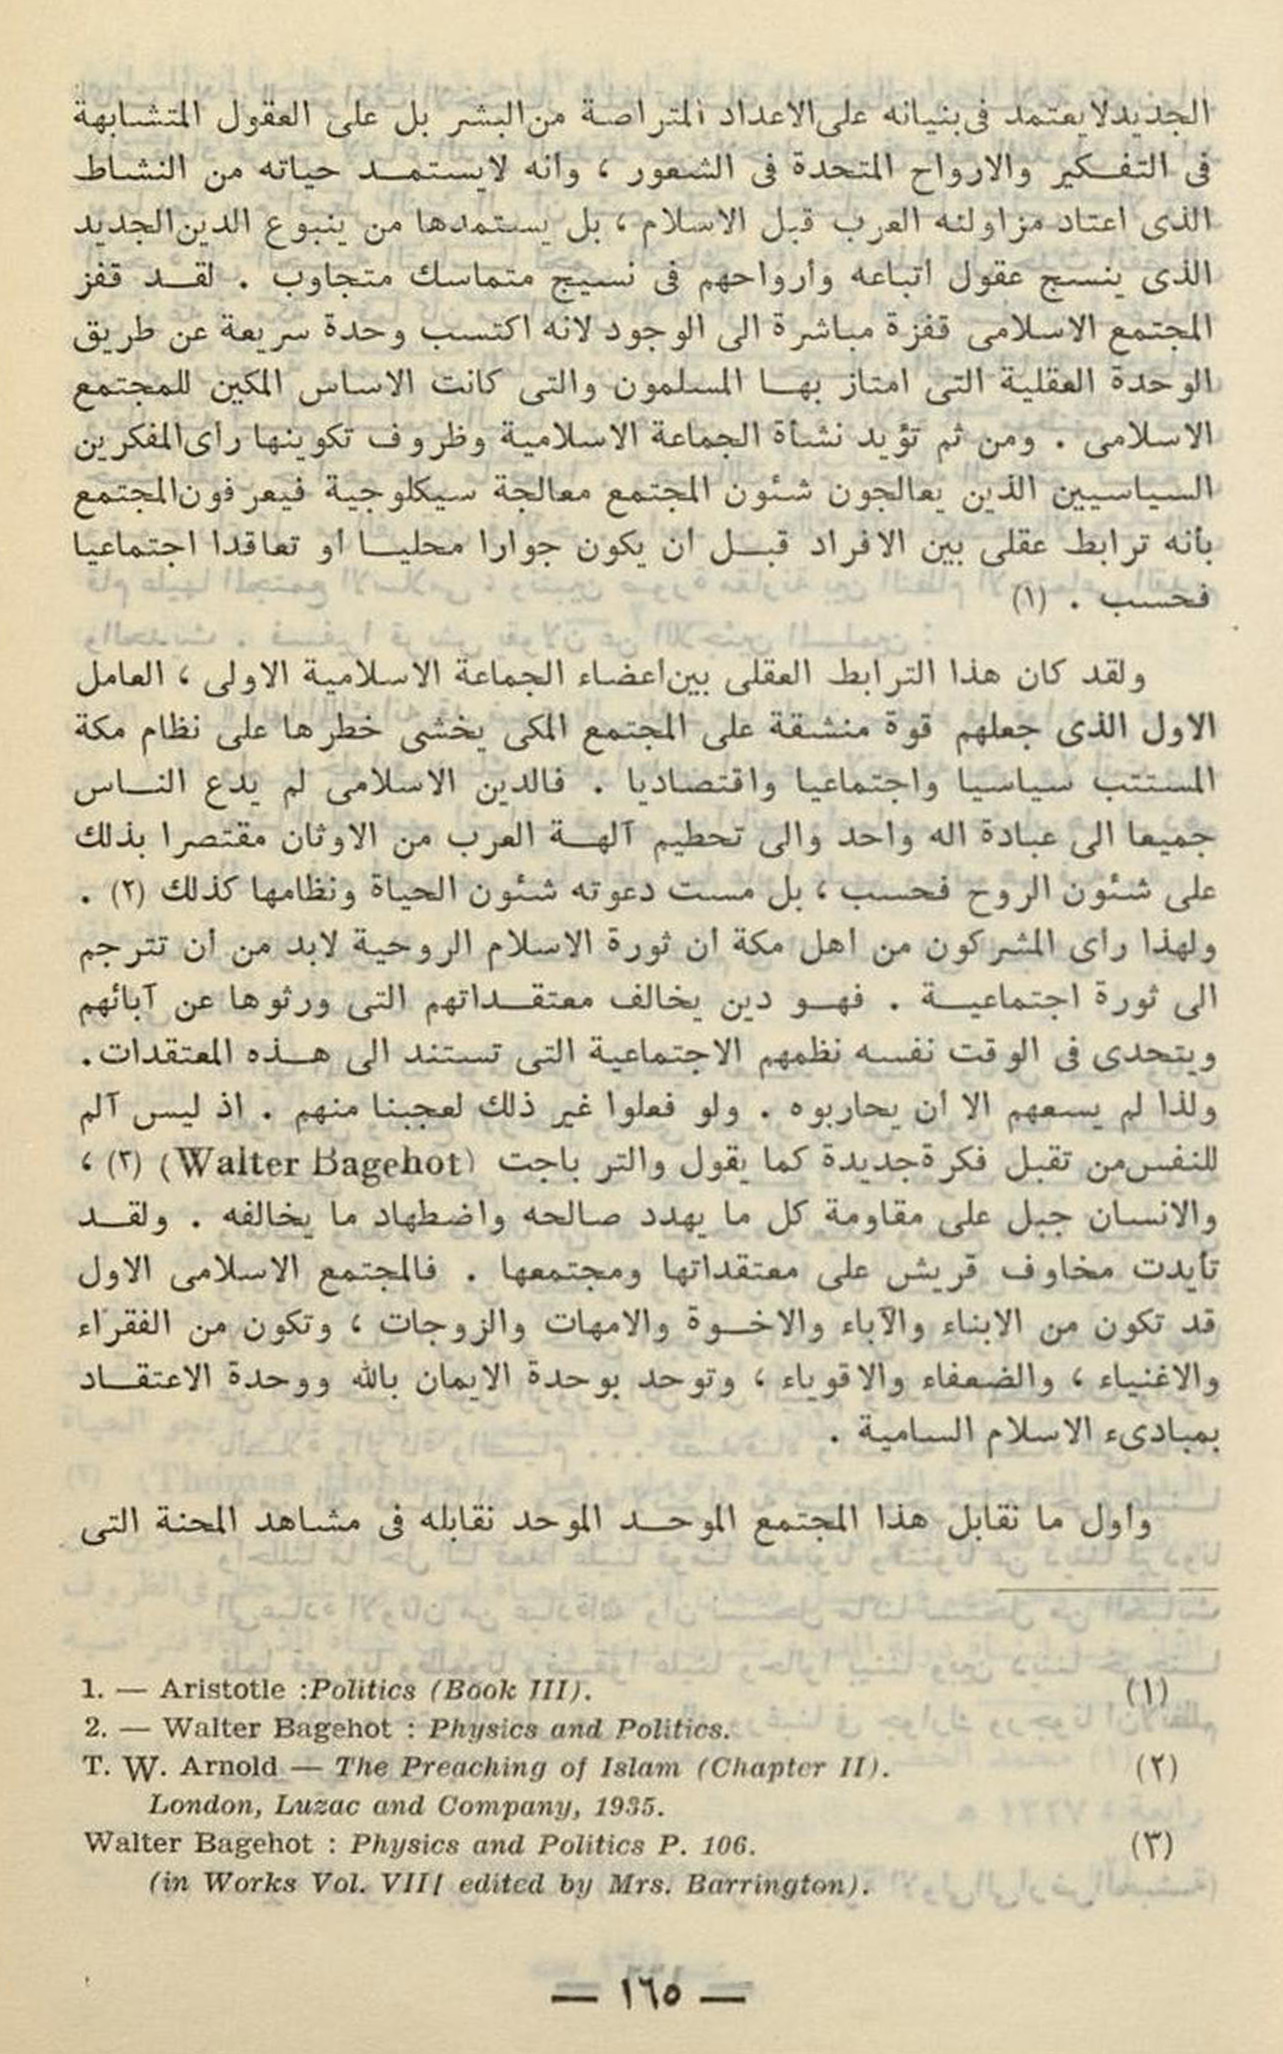 الجديد لا يعتمد فى بنيانه على الاعداد المتراصة من البشر بل على العقول المتشابهة
فى التفكير والارواح المتحدة فى الشعور ، وأنه لا يستمد حياته من النشاط
الذى اعتاد مزاولته العرب قبل الاسلام ، بل يستمدها من ينبوع الدين الجديد
الذى ينسج عقول أتباعه وأرواحهم فى نسيج متماسك متجاوب . لقد قفز
المجتمع الاسلامى قفزة مباشرة الى الوجود لانه اكتسب وحدة سريعة عن طريق
الوحدة العقلية التى امتاز بها المسلمون والتى كانت الاساس المكين للمجتمع
الاسلامى . ومن ثم تؤيد نشأة الجماعة الاسلامية وظروف تكوينها رأى المفكرين
السياسيين الذين يعالجون شئون المجتمع معالجة سيكلوجية فيعرفون المجتمع
بأنه ترابط عقلى بين الافراد قبل أن يكون جوارا محليا أو تعاقدا اجتماعيا
فحسب . (١)
ولقد كان هذا الترابط العقلى بين أعضاء الجماعة الاسلامية الاولى ، العامل
الاول الذى جعلهم قوة منشقة على المجتمع المكى يخشى خطرها على نظام مكة
المستتب سياسيا واجتماعيا واقتصاديا . فالدين الاسلامى لم يدع الناس
جميعا الى عبادة اله واحد والى تحطيم آلهة العرب من الاوثان مقتصرا بذلك
على شئون الروح فحسب ، بل مست دعوته شئون الحياة ونظامها كذلك (٢) .
ولهذا رأى المشركون من أهل مكة أن ثورة الاسلام الروحية لابد من أن تترجم
الى ثورة اجتماعية . فهو دين يخالف معتقداتهم التى ورثوها عن آبائهم
ويتحدى فى الوقت نفسه نظمهم الاجتماعية التى تستند الى هذه المعتقدات .
ولذا لم يسعهم الا أن يحاربوه . ولو فعلوا غير ذلك لعجبنا منهم . اذ ليس آلم
للنفس من تقبل فكرة جديدة كما يقول والتر باجت (Walter Bagehot) (٣) ،
والانسان جبل على مقاومة كل ما يهدد صالحه واضطهاد ما يخالفه . ولقد
تأيدت مخاوف قريش على معتقداتها ومجتمعها . فالمجتمع الاسلامى الاول
قد تكون من الابناء والآباء والاخوة والامهات والزوجات ، وتكون من الفقراء
والاغنياء ، والضعفاء والاقوياء ، وتوحد بوحدة الايمان بالله ووحدة الاعتقاد
بمبادىء الاسلام السامية .
وأول ما نقابل هذا المجتمع الموحد الموحد نقابله فى مشاهد المحنة التى
1. — Aristotle :Politics (Book III). (١)
2. — Walter Bagehot : Physics and Politics.
T. W. Arnold — The Preaching of Islam (Chapter II). (٢)
London, Luzac and Company, 1935.
Walter Bagehot : Physics and Politics P. 106. (٣)
(in Works Vol. VIII edited by Mrs. Barrington).
— ١٦٥ —